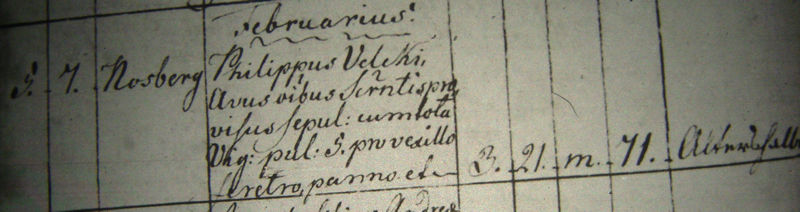 Februarius.
5. 7. Nosberg Philippus Veleki,
Avus oibus Srntis pro,
visus sepul: cum tota
Vig: pul: S. pro vexillo
feretro, panno et 3. 21. m. 71. Altershalb